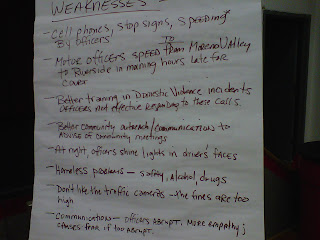 WEAKNESSES -
- Cell phones, stop signs, SPEEDING
By officers
- Motor officers SPEED TO FROM Moreno Valley
to Riverside in morning hours late for
- Better training in Domestic Violence incidents
officers not effective responding to these calls.
- Better community outreach/communication to
Advise of community meetings
- At night, officers shine lights in driver's faces
- Homeless problems - safety, Alcohol, drugs
- Don't like the traffic cameras - The fines are too
high
- Communications - officers ABRUPT. MORE empathy;
causes fear if too ABRUPT.